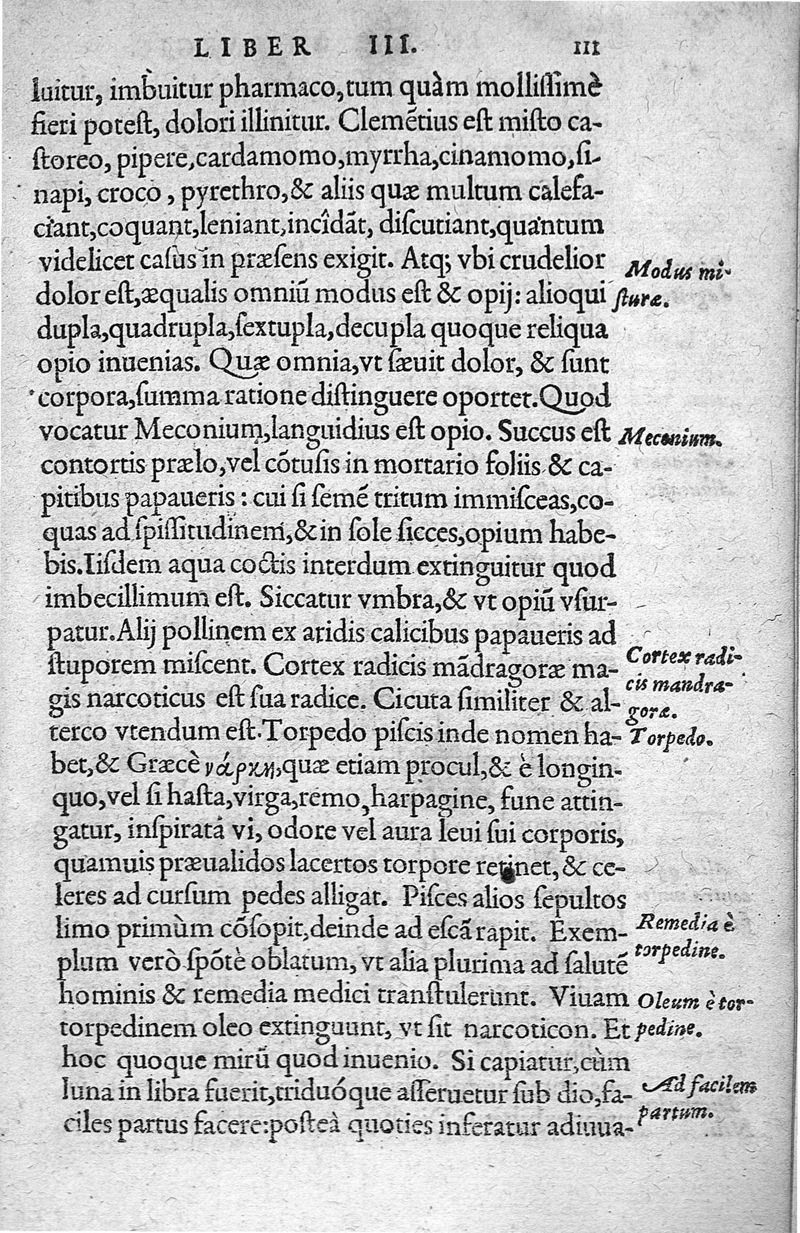 LIBER III. III
luitur, imbuitur pharmaco, tum quàm mollißimè
fieri poteſt, dolori illinitur. Clemẽtius eſt miſto ca-
ſtoreo, pipere, cardamomo, myrrha, cinamomo, ſi-
napi, croco, pyrethro, & aliis quæ multum calefa-
ciant, coquant, leniant, incîdãt, diſcutiant, quantum
videlicet caſus in præſens exigit. Atq; vbi crudelior
Modus mi-
dolor eſt, æqualis omniũ modus eſt & opij: alioqui
ſturæ.
dupla, quadrupla, ſextupla, decupla quoque reliqua
opio inuenias. Quæ omnia, vt ſæuit dolor, & ſunt
corpora, ſumma ratione diſtinguere oportet. Quod
vocatur Meconium, languidius eſt opio. Succus eſt
Meconium.
contortis prælo, vel cõtuſis in mortario foliis & ca-
pitibus papaueris: cui ſi ſemẽ tritum immiſceas, co-
quas ad ſpiſſitudinem, & in ſole ſicces, opium habe-
bis. Iiſdem aqua coctis interdum extinguitur quod
imbecillimum eſt. Siccatur vmbra, & vt opiũ vſur-
patur. Alij pollinem ex aridis calicibus papaueris ad
ſtuporem miſcent. Cortex radicis mãdragoræ ma-
Cortex radi-
gis narcoticus eſt ſua radice. Cicuta ſimiliter & al-
cis mandra-
goræ.
terco vtendum eſt. Torpedo piſcis inde nomen ha-
Torpedo.
bet, & Græcè νάρκη, quæ etiam procul, & è longin-
quo, vel ſi haſta, virga, remo, harpagine, fune attin-
gatur, inſpirata vi, odore vel aura leui ſui corporis,
quamuis præualidos lacertos torpore retinet, & ce-
leres ad curſum pedes alligat. Piſces alios ſepultos
limo primùm cõſopit, deinde ad eſcã rapit. Exem-
Remedia è
plum verò ſpõtè oblatum, vt alia plurima ad ſalutẽ
torpedine.
hominis & remedia medici tranſtulerunt. Viuam
Oleum è tor-
torpedinem oleo extinguunt, vt ſit narcoticon. Et
pedine.
hoc quoque mirũ quod inuenio. Si capiatur, cùm
luna in libra fuerit, triduóque aſſeruetur ſub dio, fa-
Ad facilem
ciles partus facere: poſteà quoties inferatur adiuua-
partum.